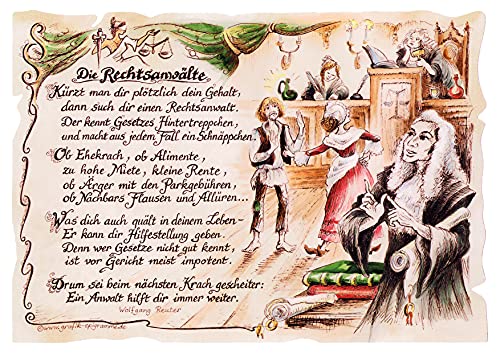 Die Rechtsanwälte
Kürzt man dir plötzlich dein Gehalt,
dann such dir einen Rechtsanwalt.
Der kennt Gesetzes Hintertreppchen,
und macht aus jedem Fall ein Schnäppchen.
Ob Ehekrach, ob Alimente,
zu hohe Miete, kleine Rente,
ob Ärger mit den Parkgebühren,
ob Nachbars Flausen und Allüren...
Was dich auch quält in deinem Leben-
Er kann dir Hilfestellung geben.
Denn wer Gesetze nicht gut kennt,
ist vor Gericht meist impotent.
Drum sei beim nächsten Krach gescheiter:
Ein Anwalt hilft dir immer weiter.
Wolfgang Reuter
©www.grafik-epigramme.de